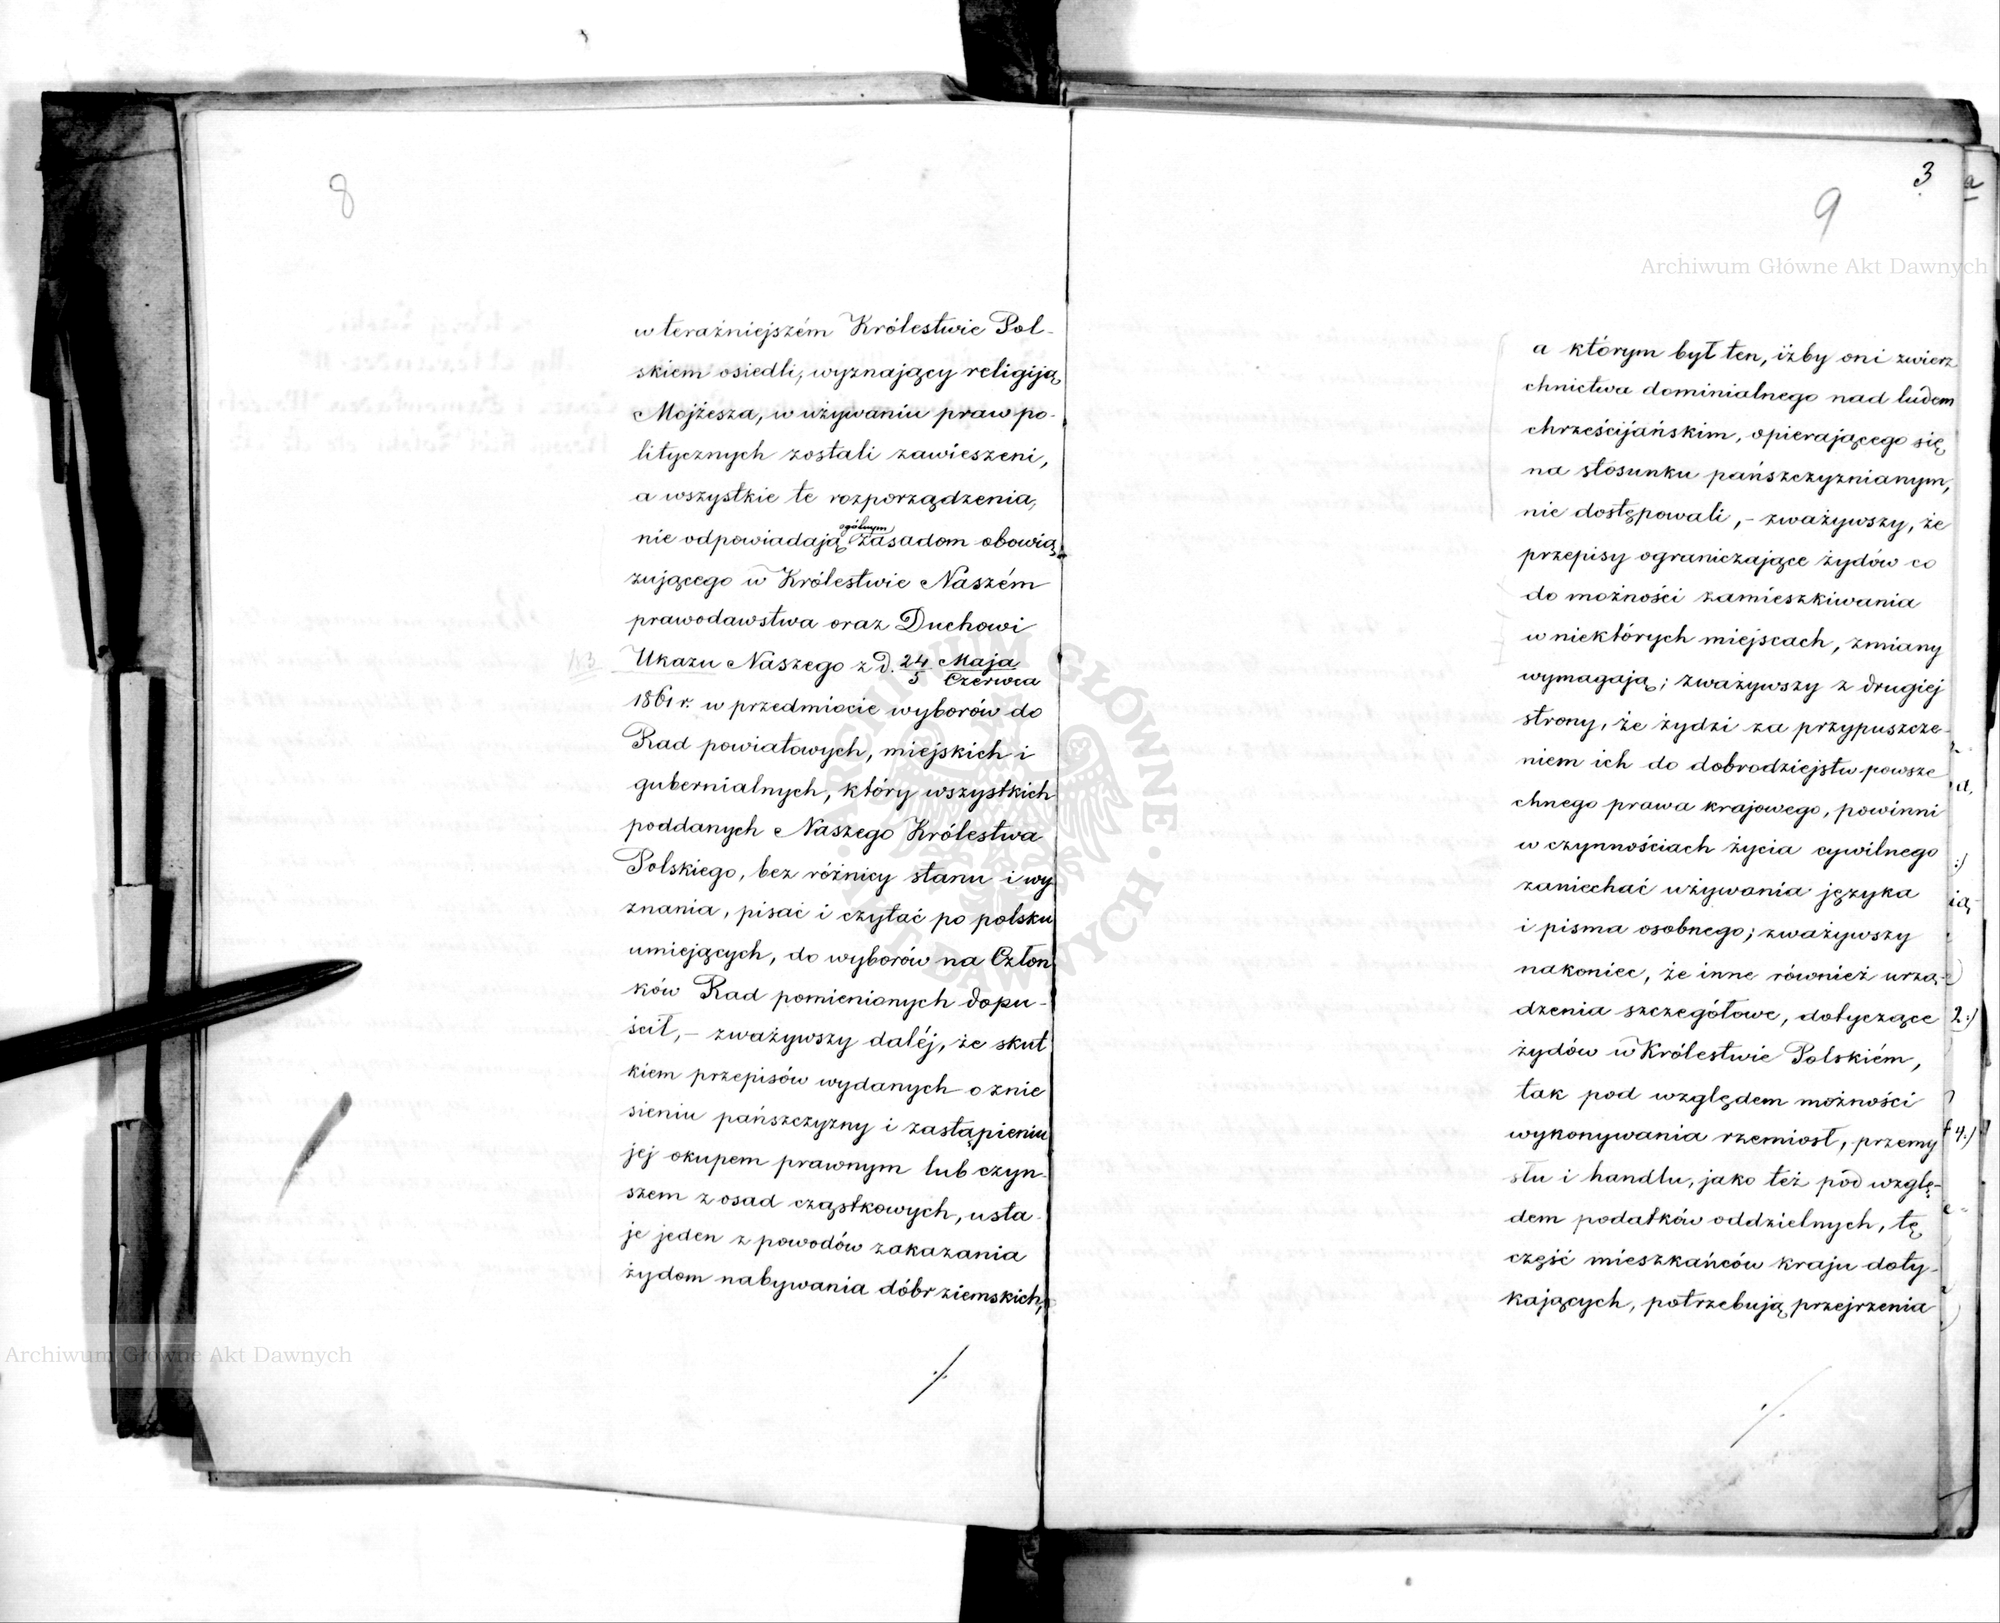 8
w teraźniejszém Królestwie Pol-
skiem osiedli, wyznający religiją
Mojżesza, w używaniu praw po-
litycznych zostali zawieszeni,
a wszystkie te rozporządzenia,
nie odpowiadają ogólnym zasadom obowią
zującego w Królestwie Naszém
prawodawstwa oraz Duchowi
Ukazu Naszego z D. 24/5 Maja/Czerwca
1861 r. w przedmiocie wyborów do
Rad powiatowych, miejskich i
gubernialnych, który wszystkich
poddanych Naszego Królestwa
Polskiego, bez różnicy stanu i wy
znania, pisać i czytać po polsku
umiejących, do wyborów na Człon
ków Rad pomienionych dopu-
ścił, - zważywszy daléj, że skut
kiem przepisów wydanych o znie
sieniu pańszczyzny i zastąpieniu
jej okupem prawnym lub czyn-
szem z osad cząstkowych, usta-
je jeden z powodów zakazania
żydom nabywania dóbr ziemskich,
./.
3
9
a którym był ten, iżby oni zwierz
chnictwa dominialnego nad ludem
chrześcijańskim, opierającego się
na stosunku pańszczyznianym,
nie dostępowali, - zważywszy, że
przepisy ograniczające żydów co
do możności zamieszkiwania
w niektórych miejscach, zmiany
wymagają; zważywszy z drugiej
strony, że żydzi za przypuszcze-
niem ich do dobrodziejstw powsze
chnego prawa krajowego, powinni
w czynnościach życia cywilnego
zaniechać używania języka
i pisma osobnego; zważywszy
nakoniec, że inne również urzą-
dzenia szczegółowe, dotyczące
żydów w Królestwie Polskiém,
tak pod względem możności
wykonywania rzemiosł, przemy
słu i handlu, jako też pod wzglę-
dem podatków oddzielnych, tę
część mieszkańców kraju doty-
kających, potrzebują przejrzenia
./.
Archiwum Główne Akt Dawnych
Archiwum Główne Akt Dawnych
ARCHIWUM GŁÓWNE AKT DAWNYCH